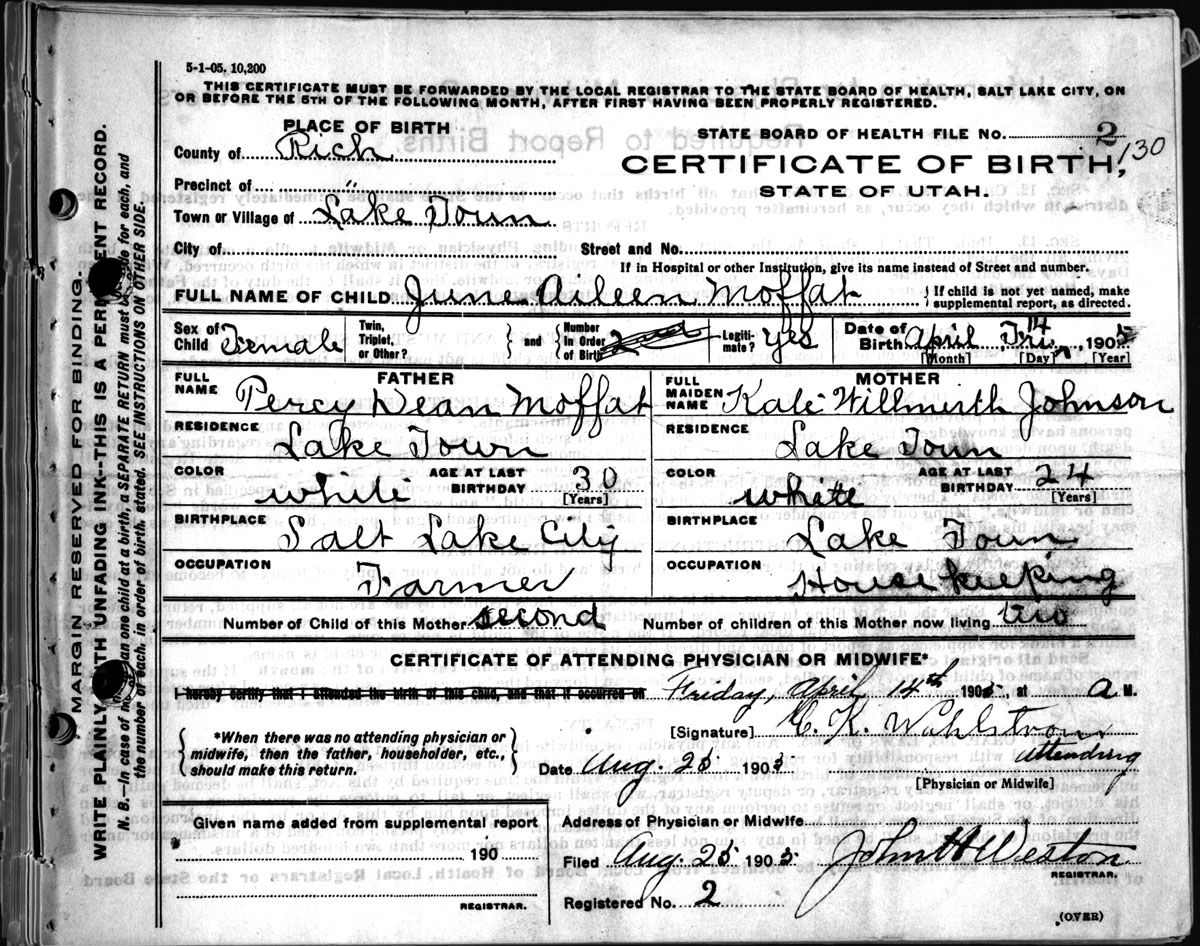 5-1-05. 10,200
THIS CERTIFICATE MUST BE FORWARDED BY THE LOCAL REGISTRAR TO THE STATE BOARD OF HEALTH, SALT LAKE CITY, ON
OR BEFORE THE 5TH OF THE FOLLOWING MONTH, AFTER FIRST HAVING BEEN PROPERLY REGISTERED.
PLACE OF BIRTH
STATE BOARD OF HEALTH FILE NO. 2
130
County of Rich
CERTIFICATE OF BIRTH,
Precinct of "
STATE OF UTAH.
Town or Village of Lake Town
City of Street and No.
If in Hospital or other Institution, give its name instead of Street and number.
FULL NAME OF CHILD June Aileen Moffat { If child is not yet named, make supplemental report, as directed.
Sex of Child Female Twin, Triplet, or Other? } and { Number In Order of Birth Legiti- mate? Yes Date of Birth April Fri. 14 1905
[Month] [Day] [Year]
FATHER MOTHER
FULL NAME Percy Dean Moffat FULL MAIDEN NAME Kate Willmirth Johnson
RESIDENCE Lake Town RESIDENCE Lake Town
COLOR white AGE AT LAST BIRTHDAY 30 [Years] COLOR white AGE AT LAST BIRTHDAY 24 [Years]
BIRTHPLACE Salt Lake City BIRTHPLACE Lake Town
OCCUPATION Farmer OCCUPATION House keeping
Number of Child of this Mother second Number of children of this Mother now living two
CERTIFICATE OF ATTENDING PHYSICIAN OR MIDWIFE*
I hereby certify that I attended the birth of this child, and that it occurred on Friday, April 14th 1905 at A M.
{ *When there was no attending physician or
midwife, then the father, householder, etc.,
should make this return. }
[Signature] C. K. Wahlstrom
Attending
Date Aug. 25 1905 [Physician or Midwife]
Given name added from supplemental report
190
REGISTRAR.
Address of Physician or Midwife
Filed Aug. 25 1905 John H Weston
REGISTRAR.
Registered No. 2
(OVER)
MARGIN RESERVED FOR BINDING.
WRITE PLAINLY WITH UNFADING INK--THIS IS A PERMANENT RECORD.
N. B.—In case of more than one child at a birth, a SEPARATE RETURN must be made for each, and
the number of each, in order of birth, stated. SEE INSTRUCTIONS ON OTHER SIDE.